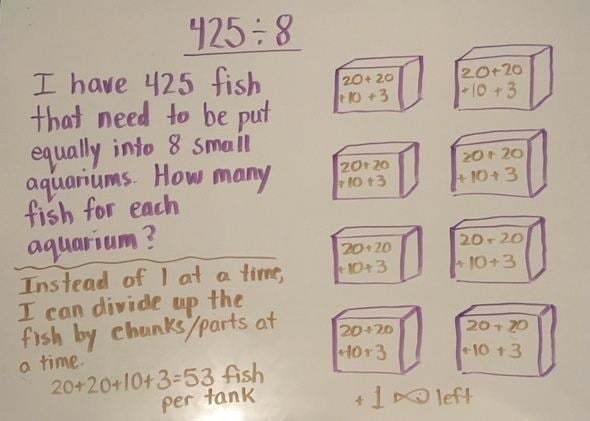 425÷8
I have 425 fish
that need to be put
equally into 8 small
aquariums. How many
fish for each
aquarium?
Instead of 1 at a time,
I can divide up the
fish by chunks/parts at
a time.
20+20+10+3=53 fish
per tank
20+20
+10+3
20+20
+10+3
20+20
+10+3
20+20
+10+3
20+20
+10+3
20+20
+10+3
20+20
+10+3
20+20
+10+3
+1 left